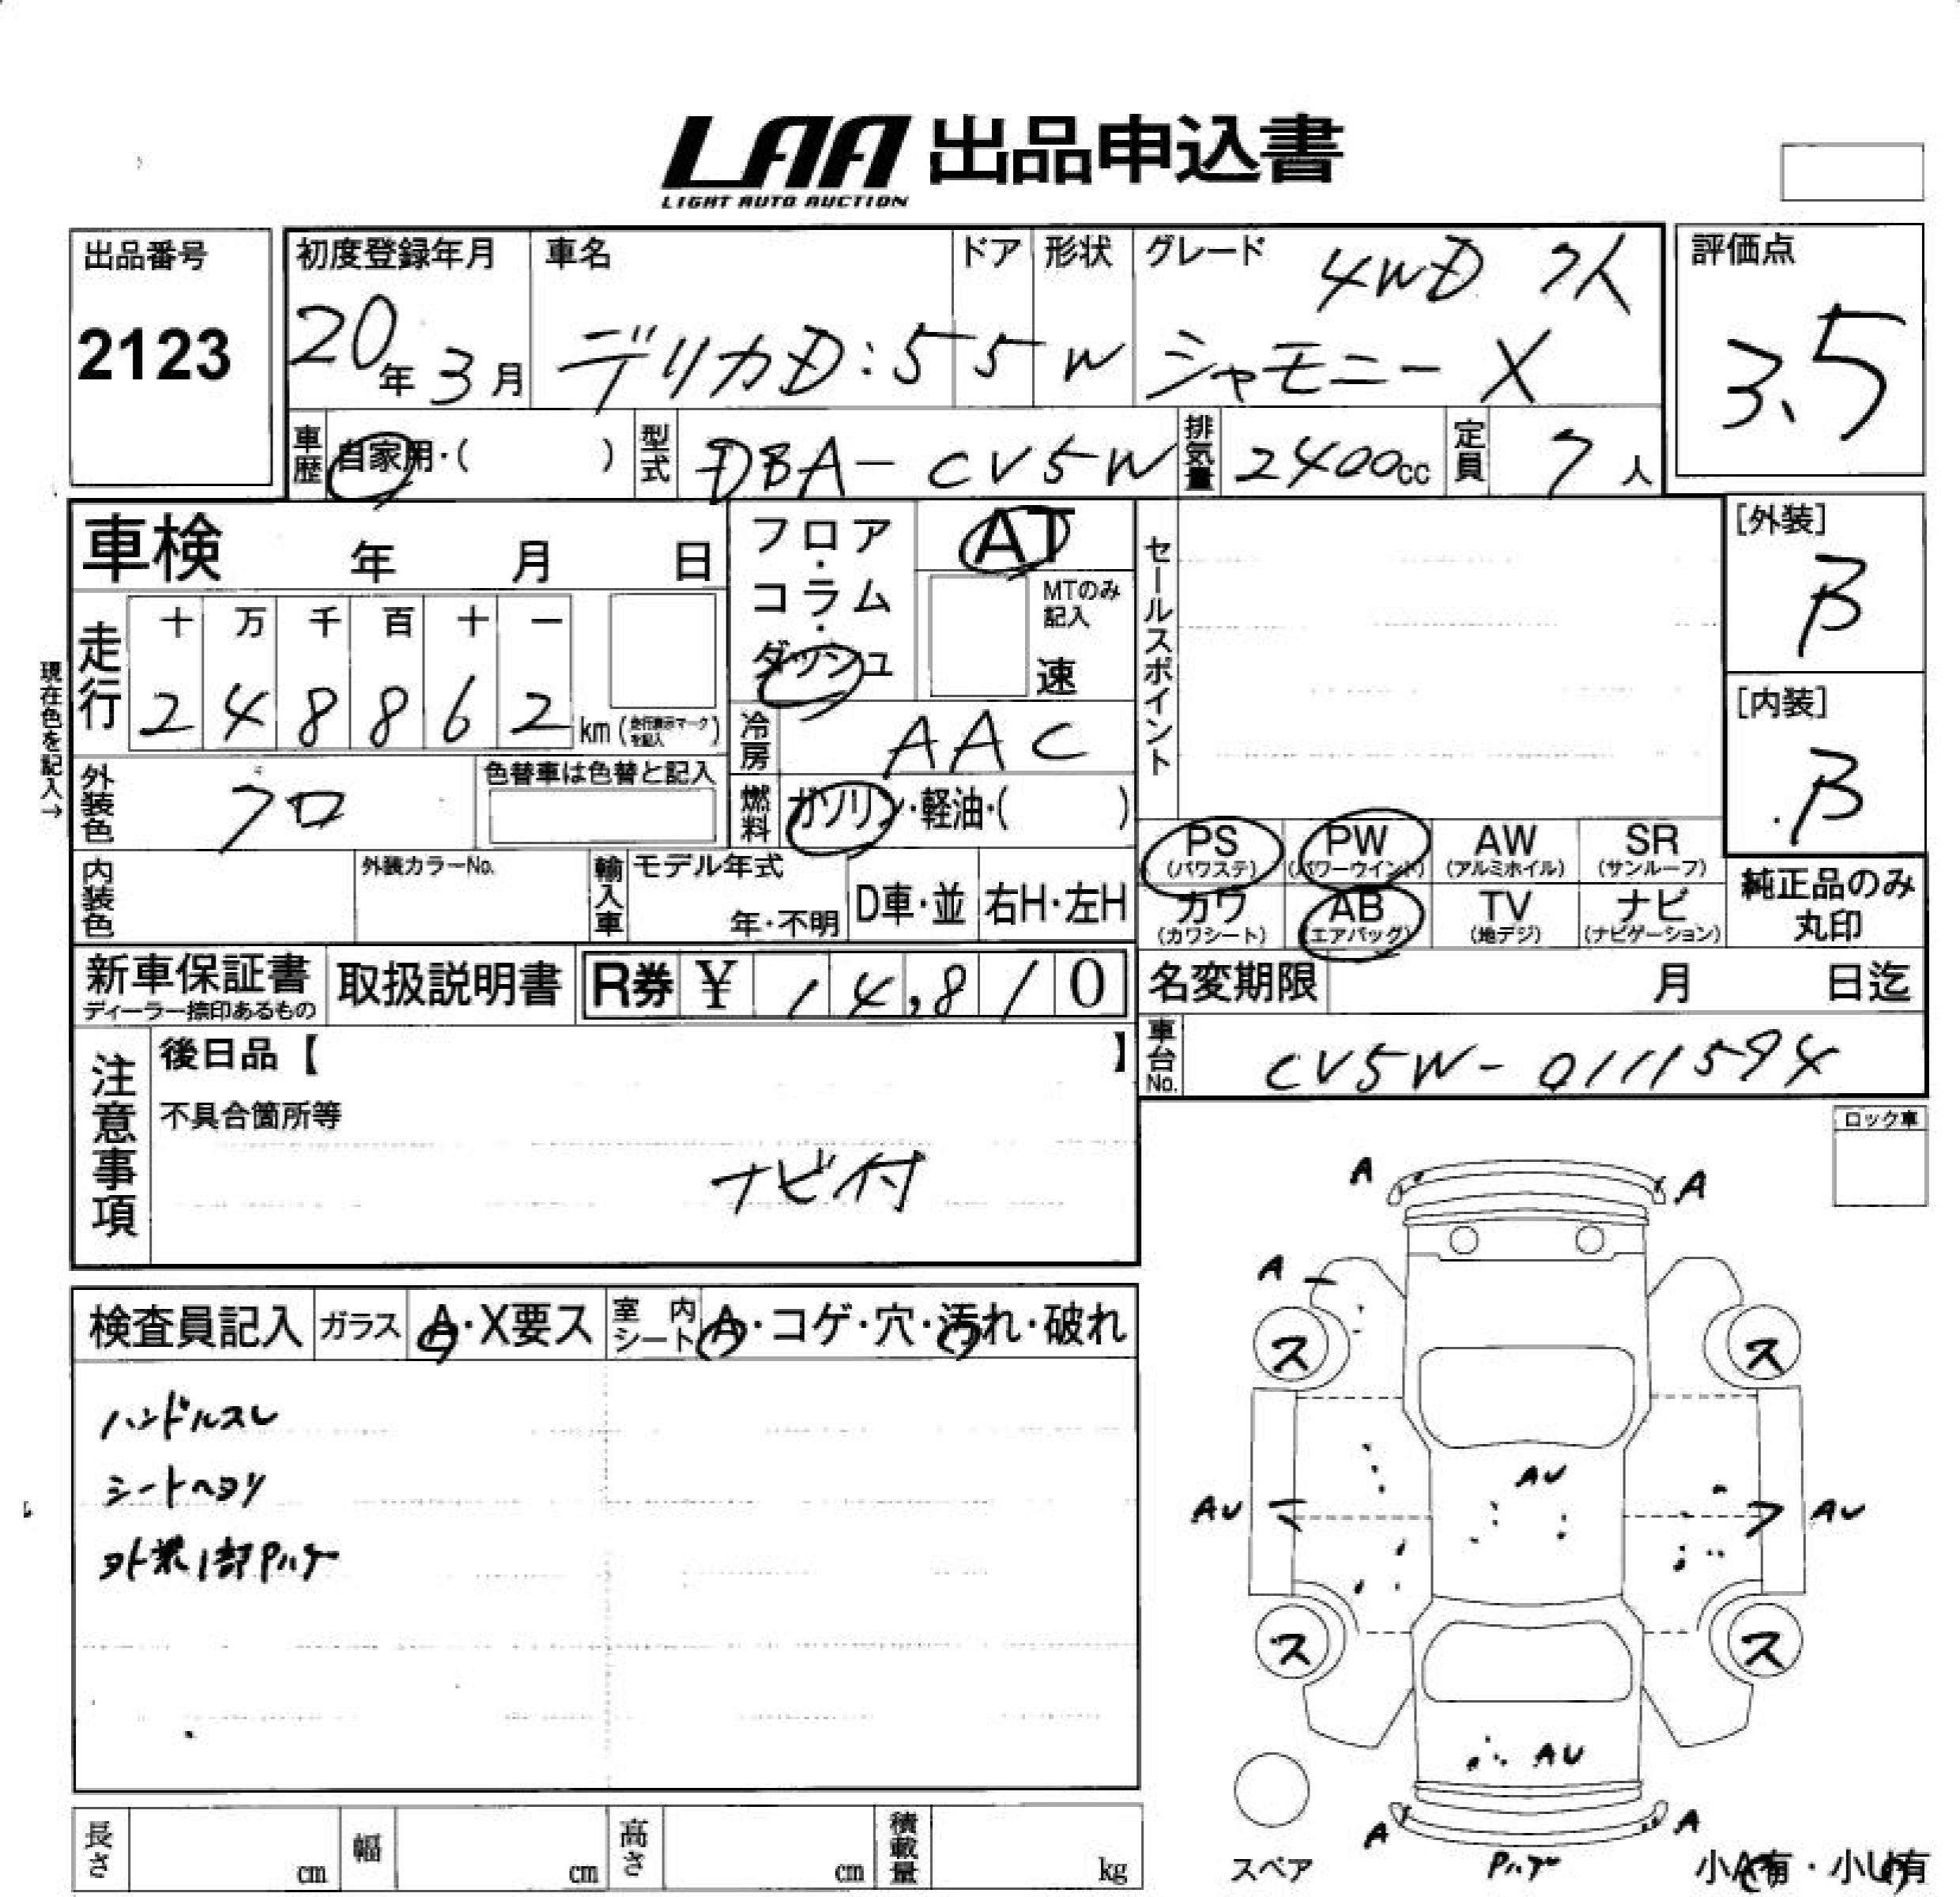 LAA 出品申込書
LIGHT AUTO AUCTION
出品番号
2123
初度登録年月
20年3月
車名
デリカD:5
ドア
5
形状
W
グレード
4WD 7人
シャモニー X
評価点
3.5
車歴
自家用・( )
型式
DBA-CV5W
排気量
2400cc
定員
7人
車検 年 月 日
フロア・コラム・ダッシュ
AT
MTのみ記入
速
セールスポイント
[外装]
B
[内装]
B
現在色を記入→
走行
十 万 千 百 十 一
2 4 8 8 6 2 km (走行表示マークを記入)
冷房
AAC
外装色
クロ
色替車は色替と記入
燃料
ガソリン・軽油・( )
内装色
外装カラーNo.
輸入車
モデル年式
年・不明
D車・並
右H・左H
PS (パワステ)
PW (パワーウインド)
AW (アルミホイル)
SR (サンルーフ)
カワ (カワシート)
AB (エアバッグ)
TV (地デジ)
ナビ (ナビゲーション)
純正品のみ丸印
新車保証書
ディーラー捺印あるもの
取扱説明書
R券 ¥ 14,810
名変期限 月 日迄
車台No.
CV5W-0111594
注意事項
後日品【 】
不具合箇所等
ナビ付
ロック車
検査員記入
ガラス
A・X要ス
室内シート
A・コゲ・穴・汚れ・破れ
ハンドルスレ
シートヘタリ
外装1部Pハゲ
A
A
A
ス
ス
AU
AU
AU
ス
ス
AU
A
A
Pハゲ
スペア
小A有・小U有
長さ cm
幅 cm
高さ cm
積載量 kg